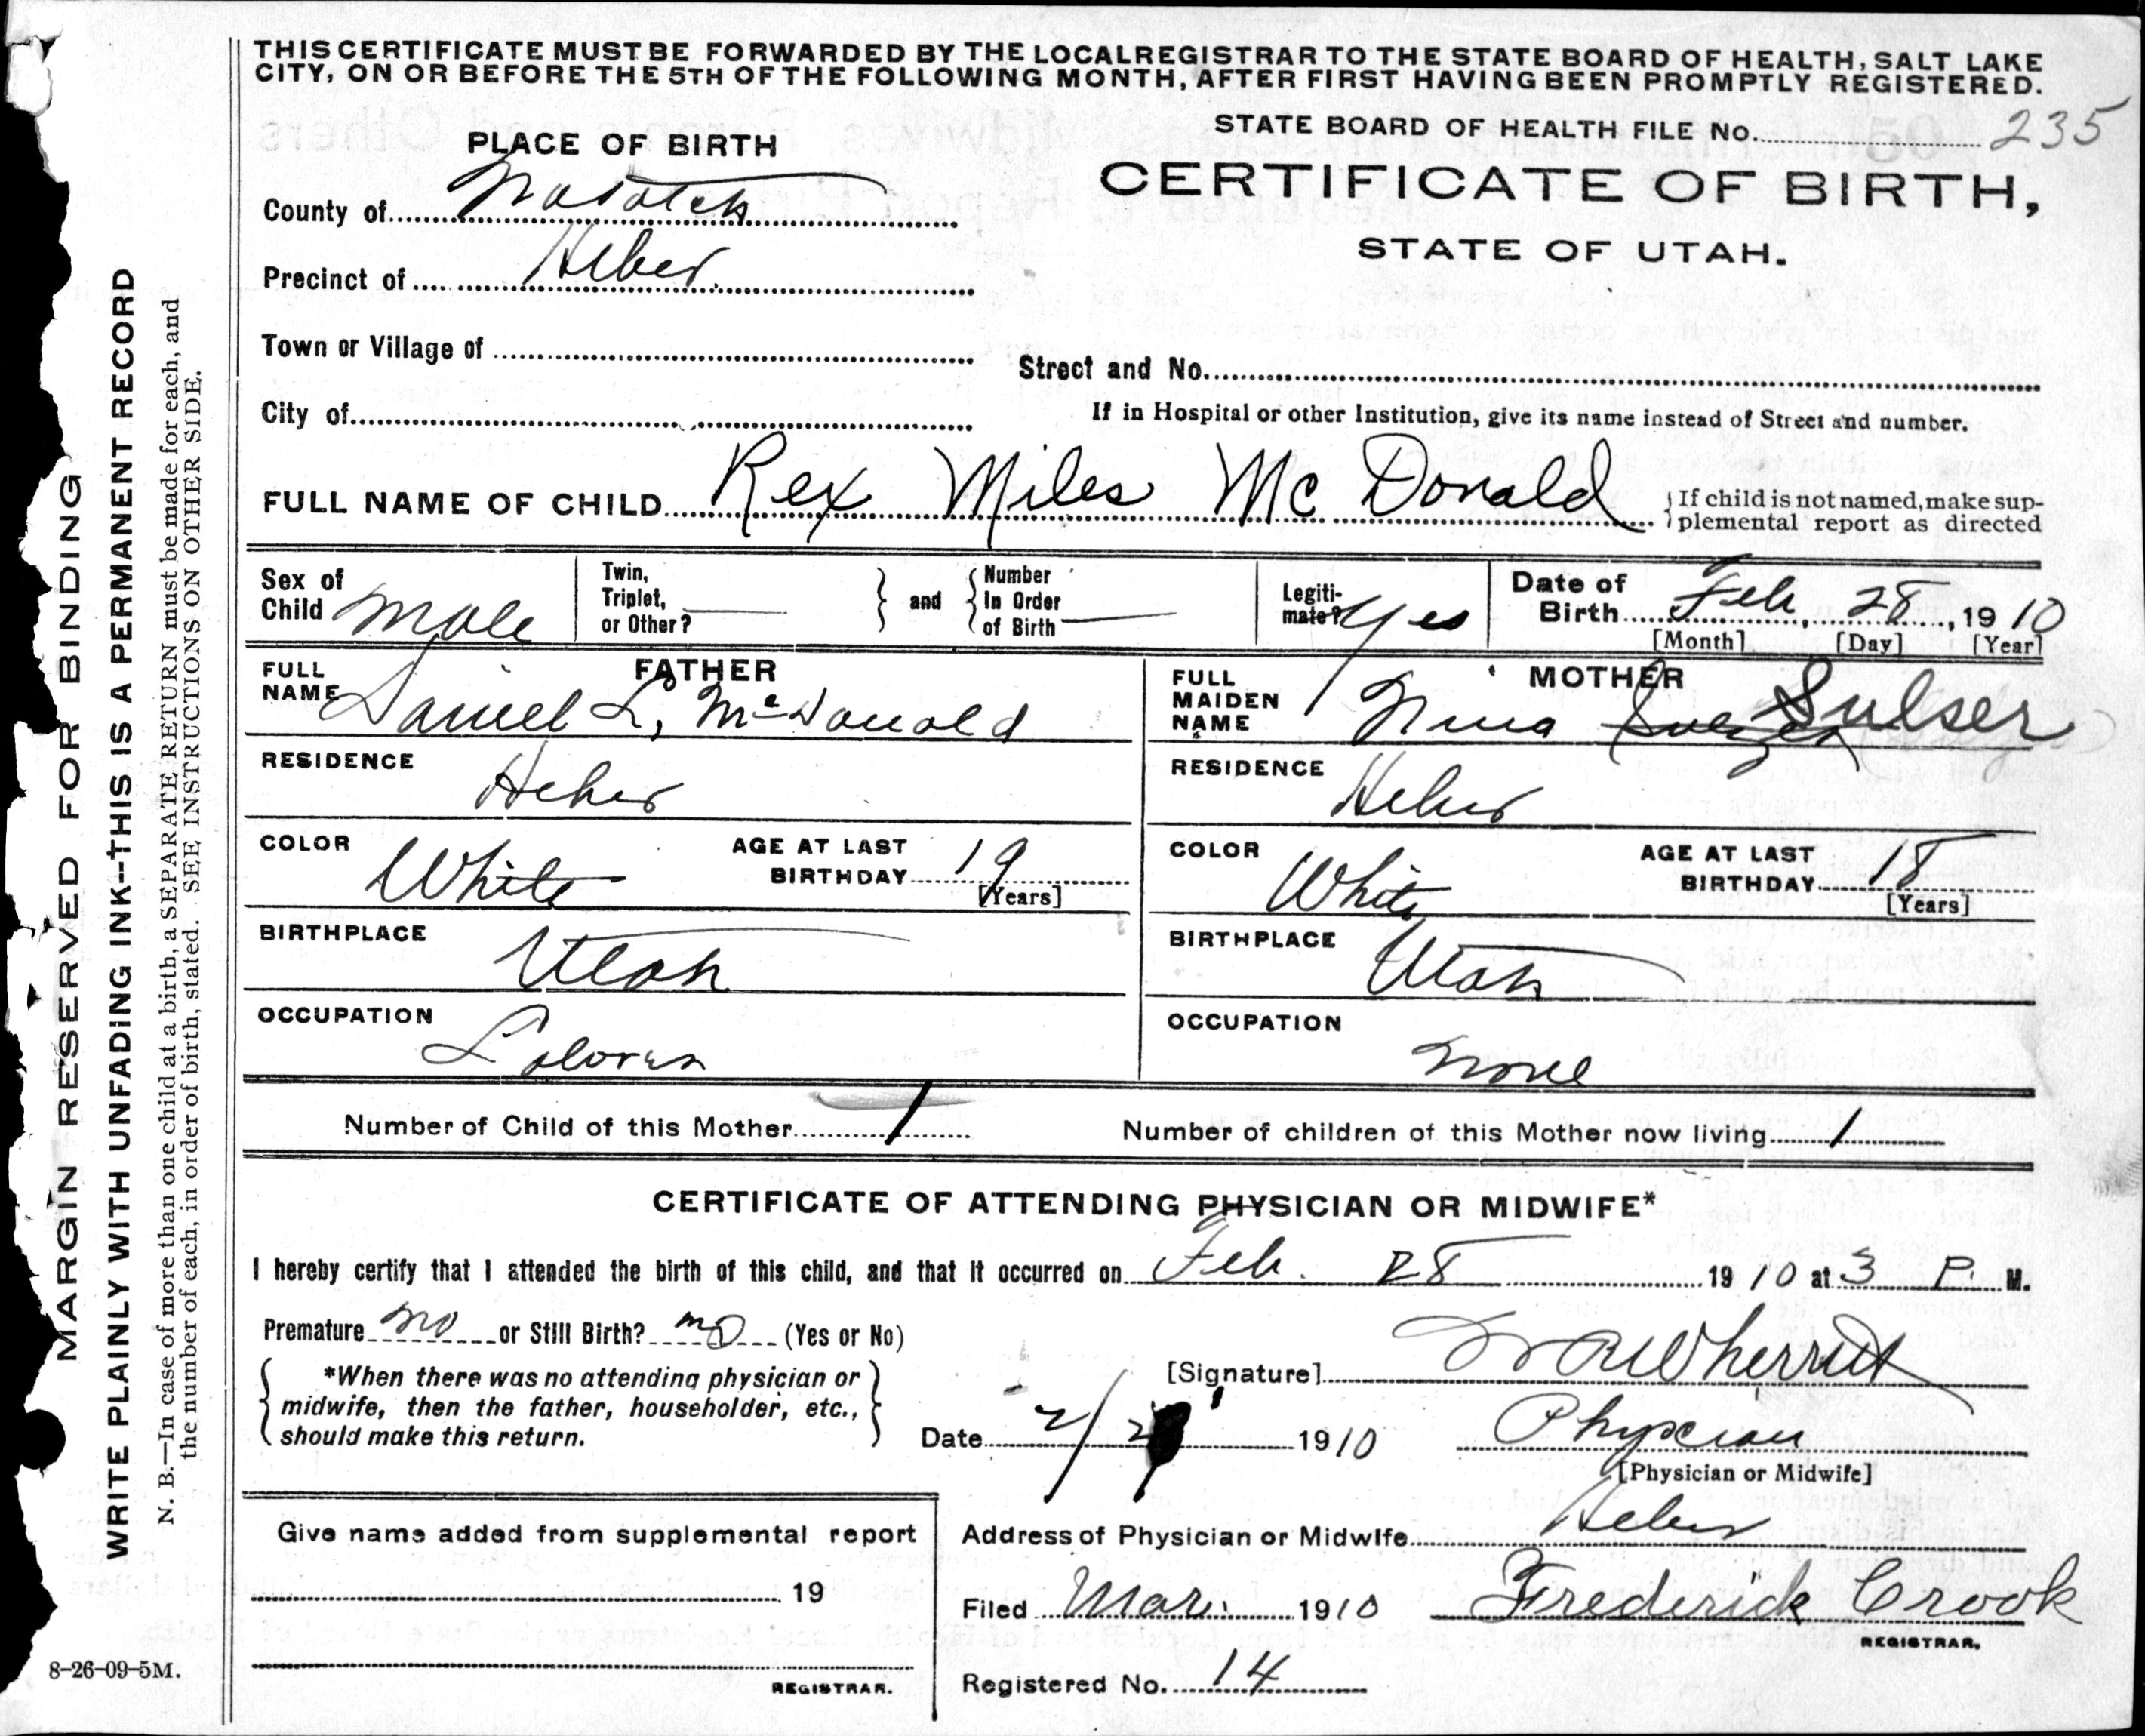 THIS CERTIFICATE MUST BE FORWARDED BY THE LOCAL REGISTRAR TO THE STATE BOARD OF HEALTH, SALT LAKE
CITY, ON OR BEFORE THE 5TH OF THE FOLLOWING MONTH, AFTER FIRST HAVING BEEN PROMPTLY REGISTERED.
STATE BOARD OF HEALTH FILE No. 235
PLACE OF BIRTH
CERTIFICATE OF BIRTH,
STATE OF UTAH.
County of Wasatch
Precinct of Heber
Town or Village of
Street and No.
City of
If in Hospital or other Institution, give its name instead of Street and number.
FULL NAME OF CHILD Rex Miles McDonald
If child is not named, make sup-
plemental report as directed
Sex of
Child Male
Twin,
Triplet,
or Other?
and
Number
In Order
of Birth
Legiti-
mate? Yes
Date of
Birth Feb, 28, 1910
[Month] [Day] [Year]
FATHER
FULL
NAME Daniel L, McDonald
MOTHER
FULL
MAIDEN
NAME Nina Sulser
RESIDENCE Heber
RESIDENCE Heber
COLOR White
AGE AT LAST
BIRTHDAY 19
[Years]
COLOR White
AGE AT LAST
BIRTHDAY 18
[Years]
BIRTHPLACE Utah
BIRTHPLACE Utah
OCCUPATION
OCCUPATION None
Number of Child of this Mother 1
Number of children of this Mother now living 1
CERTIFICATE OF ATTENDING PHYSICIAN OR MIDWIFE*
I hereby certify that I attended the birth of this child, and that it occurred on Feb. 28 1910 at 3 P. M.
Premature no or Still Birth? no (Yes or No)
*When there was no attending physician or
midwife, then the father, householder, etc.,
should make this return.
[Signature] Wherritt
Date 2/2 1910
Physician
[Physician or Midwife]
Give name added from supplemental report
19
REGISTRAR.
Address of Physician or Midwife Heber
Filed Mar. 1910 Frederick Crook
REGISTRAR.
Registered No. 14
8-26-09-5M.
MARGIN RESERVED FOR BINDING
WRITE PLAINLY WITH UNFADING INK--THIS IS A PERMANENT RECORD
N. B.—In case of more than one child at a birth, a SEPARATE RETURN must be made for each, and
the number of each, in order of birth, stated. SEE INSTRUCTIONS ON OTHER SIDE.